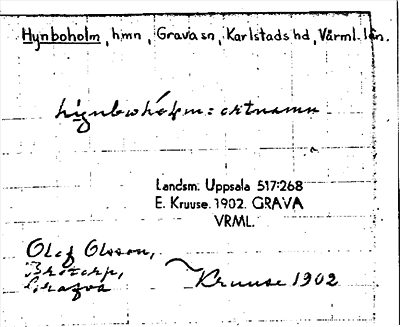 Hynboholm, hmn, Grava sn, Karlstads hd, Värml. län.
hýnbohólm = ortnamn
Landsm. Uppsala 517:268
E. Kruuse. 1902. GRAVA
VRML.
Olof Olsson,
Brötorp,
Grafva
Kruuse 1902